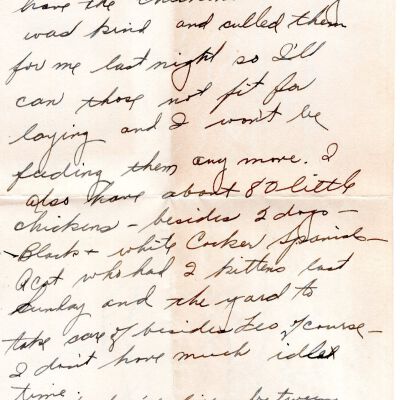 have the chicken
was kind and culled them
for me last night so I'll
can those not fit for
laying and I won't be
feeding them any more. I
also have about 80 little
chickens - besides 2 dogs -
Black & white Cocker Spaniels -
A cat who had 2 kittens last
Sunday and the yard to
take care of besides Leo, of course -
I don't have much idle
time.
between